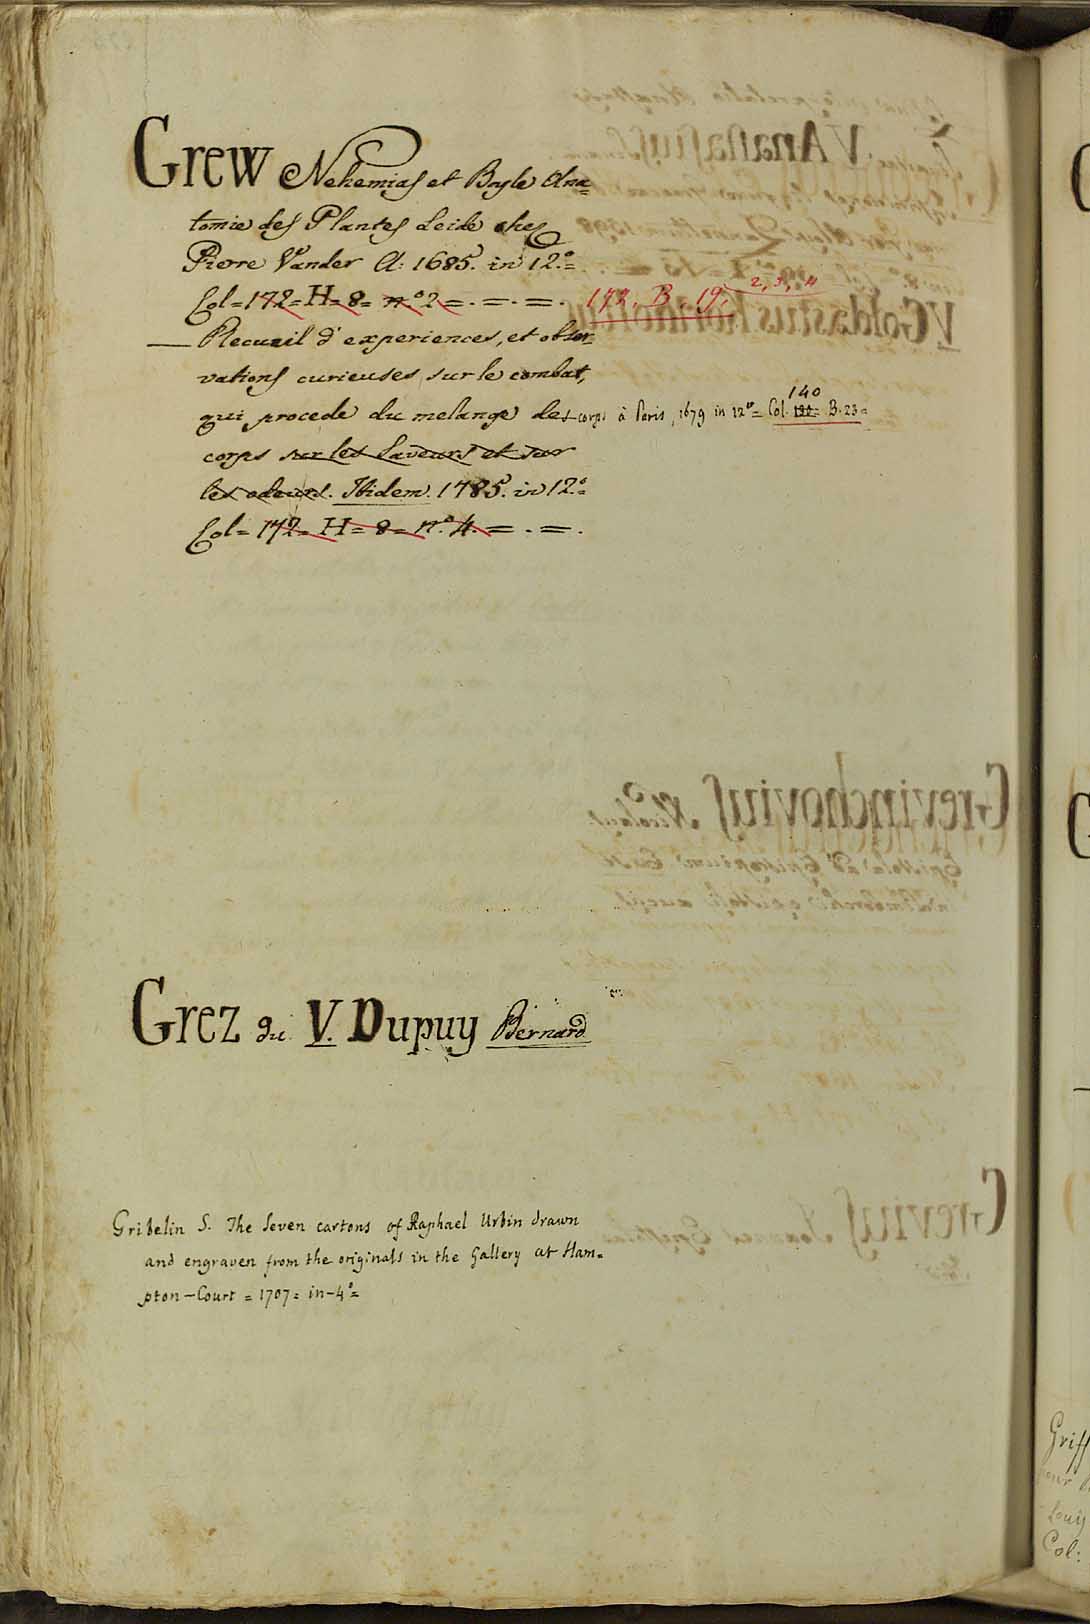 Grew Nehemias et Boyle Ana=
tomie des Plantes Leide chez
Pierre Vander A: 1685. in 12.º=
Col=172=H=8= nº2=.=.=. 172. B. 19. 2, 3, 4
— Recueil d'experiences, et obser=
vations curieuses sur le combat,
qui procede du melange des corps à Paris, 1679 in 12º= Col. 192= 140 B. 23=
corps sur les Saveurs et sur
les odeurs. Ibidem. 1785. in 12.º=
Col= 172= H= 8= nº. 4.=.=.
Grez du V. Dupuy Bernard
Gribelin S. The Seven cartons of Raphael Urbin drawn
and engraven from the originals in the Gallery at Ham=
pton-Court = 1707= in-4º=
Griff
Louis
Col: